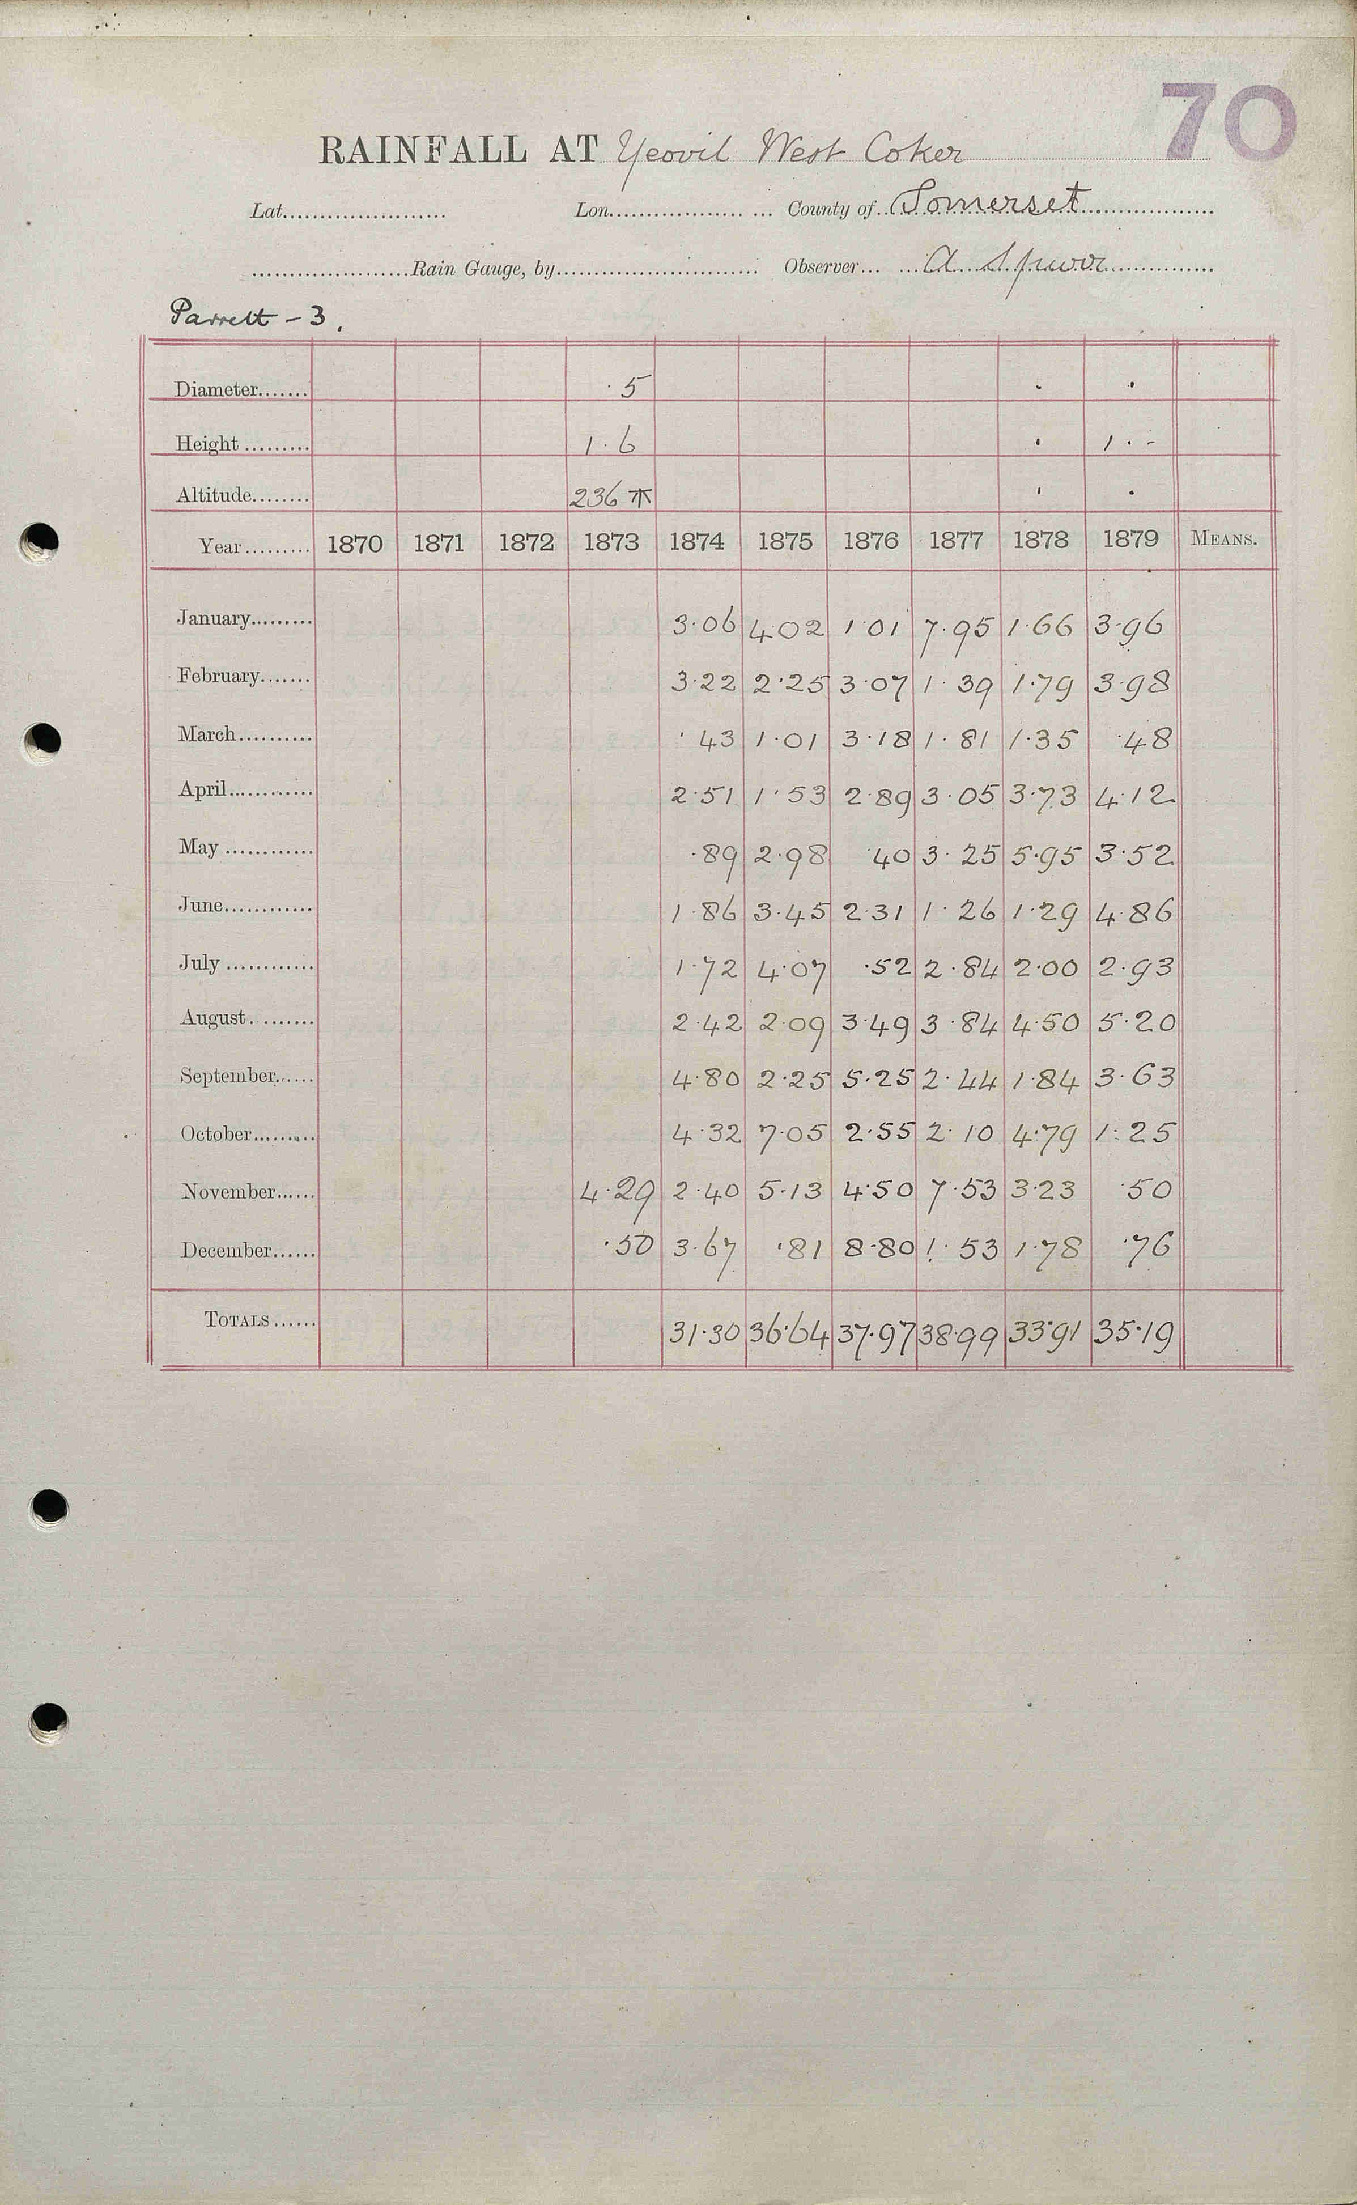 70
RAINFALL AT Yeovil West Coker
Lat...................... Lon.................. ... County of Somerset
......................Rain Gauge, by............................ Observer... A Spurr
Parrett - 3.
Diameter....... ·5 · ·
Height ......... 1·6 · 1·-
Altitude........ 236 · ·
Year......... 1870 1871 1872 1873 1874 1875 1876 1877 1878 1879 MEANS.
January......... 3·06 4·02 1·01 7·95 1·66 3·96
February....... 3·22 2·25 3·07 1·39 1·79 3·98
March.......... ·43 1·01 3·18 1·81 1·35 ·48
April............ 2·51 1·53 2·89 3·05 3·73 4·12
May ............ ·89 2·98 ·40 3·25 5·95 3·52
June............ 1·86 3·45 2·31 1·26 1·29 4·86
July ............ 1·72 4·07 ·52 2·84 2·00 2·93
August......... 2·42 2·09 3·49 3·84 4·50 5·20
September...... 4·80 2·25 5·25 2·44 1·84 3·63
October......... 4·32 7·05 2·55 2·10 4·79 1·25
November...... 4·29 2·40 5·13 4·50 7·53 3·23 ·50
December...... ·50 3·67 ·81 8·80 1·53 1·78 ·76
TOTALS...... 31·30 36·64 37·97 38·99 33·91 35·19